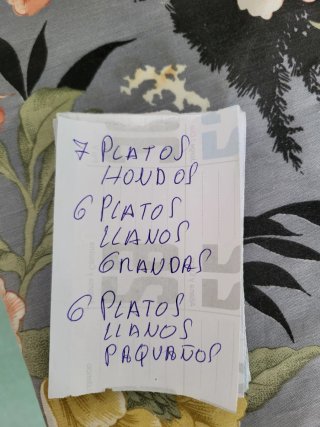 7 PLATOS
HONDOS
6 PLATOS
LLANOS
GRANDAS
6 PLATOS
LLANOS
PAQUAÑOS